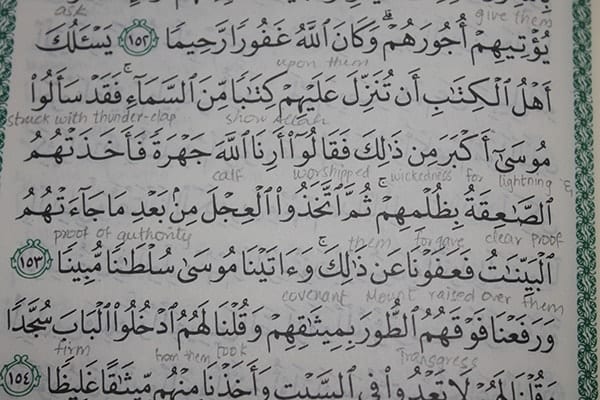 ask give them
يُؤْتِيهِمْ أُجُورَهُمْ ۗ وَكَانَ ٱللَّهُ غَفُورًا رَّحِيمًا ١٥٢ يَسْـَٔلُكَ
upon them
أَهْلُ ٱلْكِتَٰبِ أَن تُنَزِّلَ عَلَيْهِمْ كِتَٰبًا مِّنَ ٱلسَّمَآءِ ۚ فَقَدْ سَأَلُوا۟
struck with thunder-clap show Allah
مُوسَىٰٓ أَكْبَرَ مِن ذَٰلِكَ فَقَالُوٓا۟ أَرِنَا ٱللَّهَ جَهْرَةً فَأَخَذَتْهُمُ
calf worshipped wickedness for lightning &
ٱلصَّٰعِقَةُ بِظُلْمِهِمْ ۚ ثُمَّ ٱتَّخَذُوا۟ ٱلْعِجْلَ مِنۢ بَعْدِ مَا جَآءَتْهُمُ
proof of authority them forgave clear proof
ٱلْبَيِّنَٰتُ فَعَفَوْنَا عَن ذَٰلِكَ ۚ وَءَاتَيْنَا مُوسَىٰ سُلْطَٰنًا مُّبِينًا ١٥٣
covenant Mount raised over them
وَرَفَعْنَا فَوْقَهُمُ ٱلطُّورَ بِمِيثَٰقِهِمْ وَقُلْنَا لَهُمُ ٱدْخُلُوا۟ ٱلْبَابَ سُجَّدًا
firm from them took Transgress
وَقُلْنَا لَهُمْ لَا تَعْدُوا۟ فِى ٱلسَّبْتِ وَأَخَذْنَا مِنْهُم مِّيثَٰقًا غَلِيظًا ١٥٤